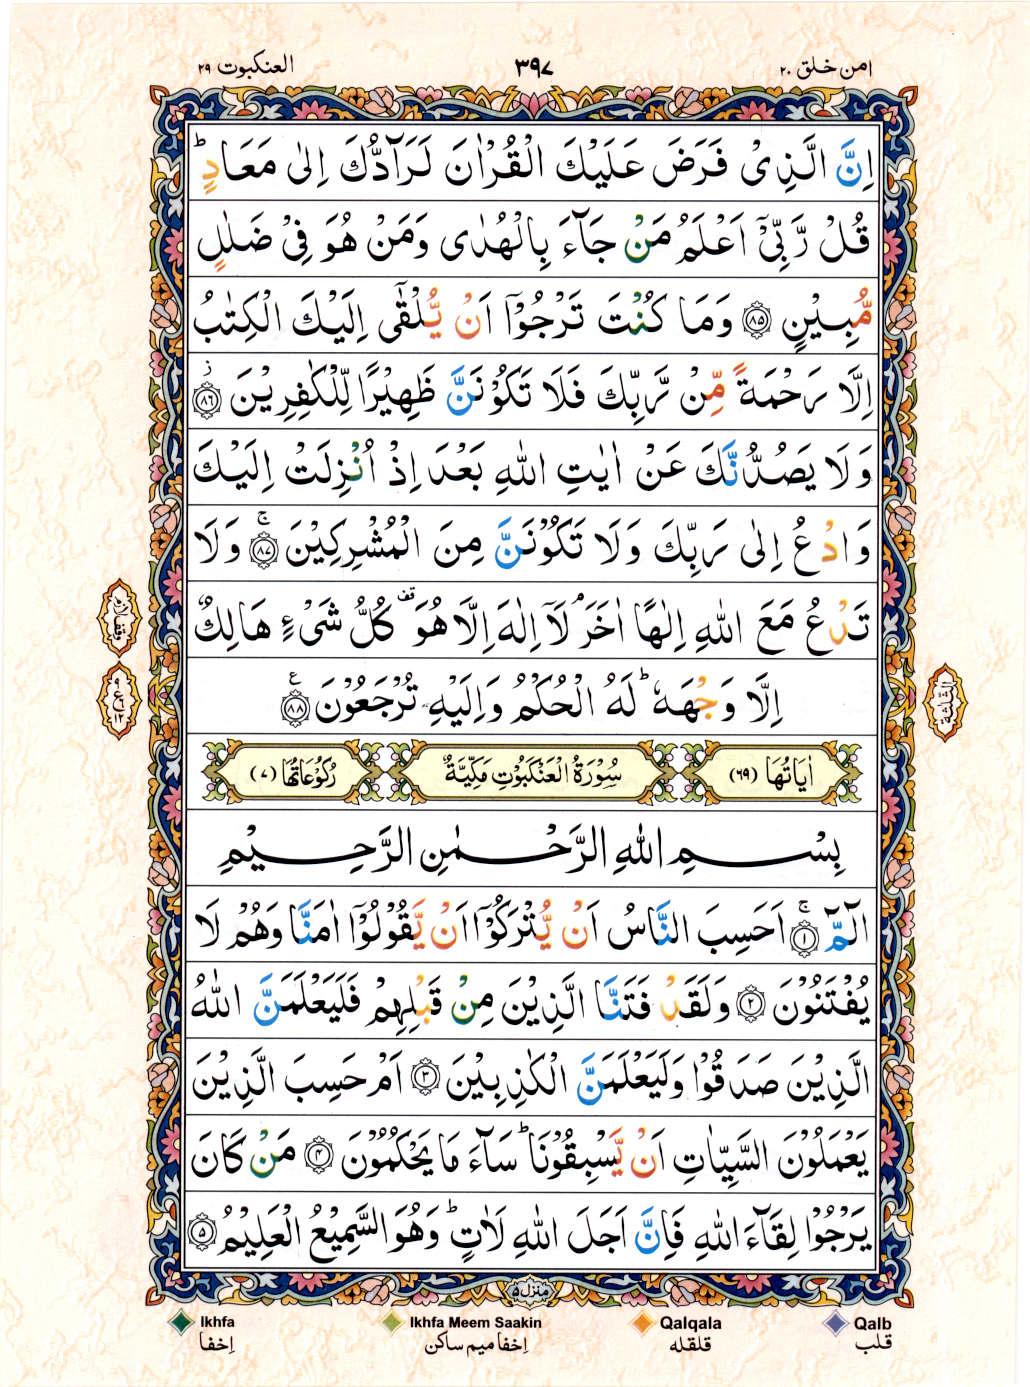 امن خلق ۲۰
۳۹۷
العنكبوت ۲۹
اِنَّ الَّذِىْ فَرَضَ عَلَيْكَ الْقُرْاٰنَ لَرَآدُّكَ اِلٰى مَعَادٍ ؕ
قُلْ رَّبِّىْۤ اَعْلَمُ مَنْ جَآءَ بِالْهُدٰى وَمَنْ هُوَ فِىْ ضَلٰلٍ
مُّبِيْنٍ ۝۸۵ وَمَا كُنْتَ تَرْجُوْۤا اَنْ يُّلْقٰٓى اِلَيْكَ الْكِتٰبُ
اِلَّا رَحْمَةً مِّنْ رَّبِّكَ فَلَا تَكُوْنَنَّ ظَهِيْرًا لِّلْكٰفِرِيْنَ ز ۝۸۶
وَلَا يَصُدُّنَّكَ عَنْ اٰيٰتِ اللّٰهِ بَعْدَ اِذْ اُنْزِلَتْ اِلَيْكَ
وَادْعُ اِلٰى رَبِّكَ وَلَا تَكُوْنَنَّ مِنَ الْمُشْرِكِيْنَ ۚ ۝۸۷ وَلَا
تَدْعُ مَعَ اللّٰهِ اِلٰهًا اٰخَرَ ۘ لَاۤ اِلٰهَ اِلَّا هُوَ قف كُلُّ شَىْءٍ هَالِكٌ
اِلَّا وَجْهَهٗ ؕ لَهُ الْحُكْمُ وَاِلَيْهِ تُرْجَعُوْنَ ع ۝۸۸
وقف لازم
ع ۱۲
الثلثة
اٰيَاتُهَا (۶۹)
سُوْرَةُ الْعَنْكَبُوْتِ مَكِّيَّةٌ
رُكُوْعَاتُهَا (۷)
بِسْمِ اللّٰهِ الرَّحْمٰنِ الرَّحِيْمِ
الٓمّٓ ۚ ۝۱ اَحَسِبَ النَّاسُ اَنْ يُّتْرَكُوْۤا اَنْ يَّقُوْلُوْۤا اٰمَنَّا وَهُمْ لَا
يُفْتَنُوْنَ ۝۲ وَلَقَدْ فَتَنَّا الَّذِيْنَ مِنْ قَبْلِهِمْ فَلَيَعْلَمَنَّ اللّٰهُ
الَّذِيْنَ صَدَقُوْا وَلَيَعْلَمَنَّ الْكٰذِبِيْنَ ۝۳ اَمْ حَسِبَ الَّذِيْنَ
يَعْمَلُوْنَ السَّيِّاٰتِ اَنْ يَّسْبِقُوْنَا ؕ سَآءَ مَا يَحْكُمُوْنَ ۝۴ مَنْ كَانَ
يَرْجُوْا لِقَآءَ اللّٰهِ فَاِنَّ اَجَلَ اللّٰهِ لَاٰتٍ ؕ وَهُوَ السَّمِيْعُ الْعَلِيْمُ ۝۵
منزل ۵
Ikhfa
Ikhfa Meem Saakin
Qalqala
Qalb
اِخفا
اِخفا میم ساکن
قلقله
قلب